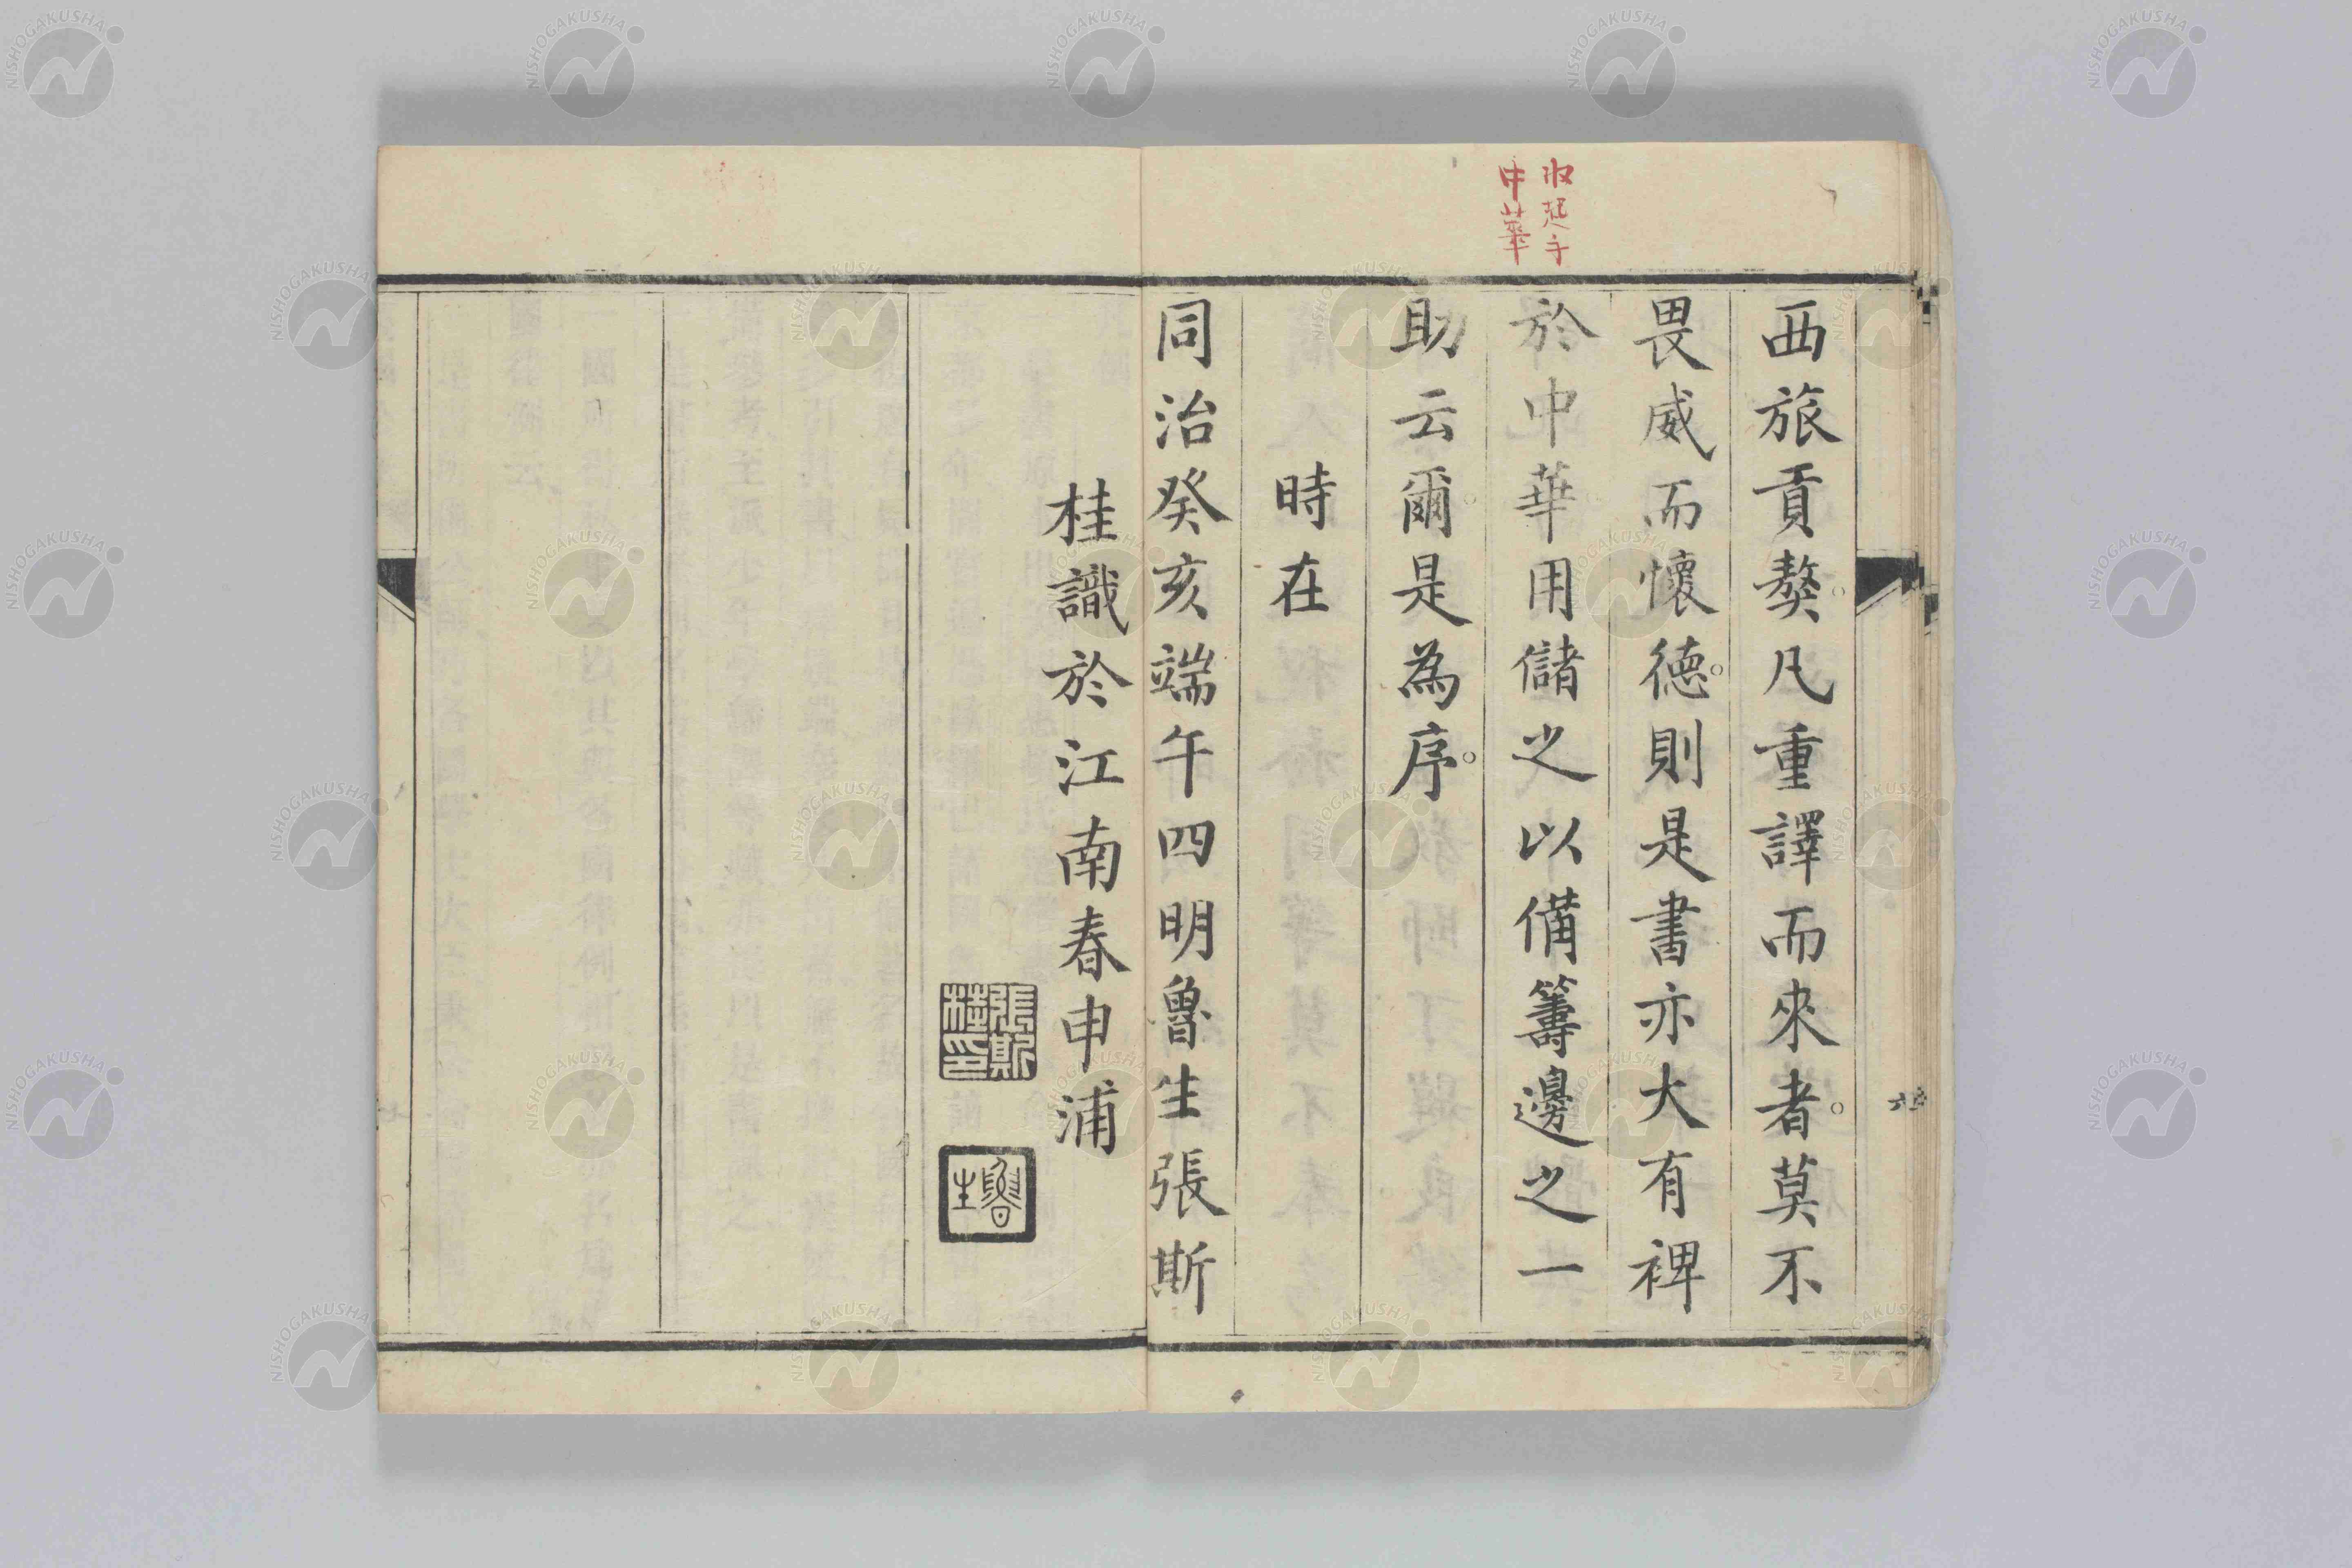 西旅貢獒。凡重譯而來者。莫不
畏威而懷德。則是書亦大有裨
於中華用儲之以備籌邊之一
助云爾。是為序。
時在
同治癸亥端午四明魯生張斯
桂識於江南春申浦
張斯桂印
魯生
中華
六
NISHOGAKUSHA